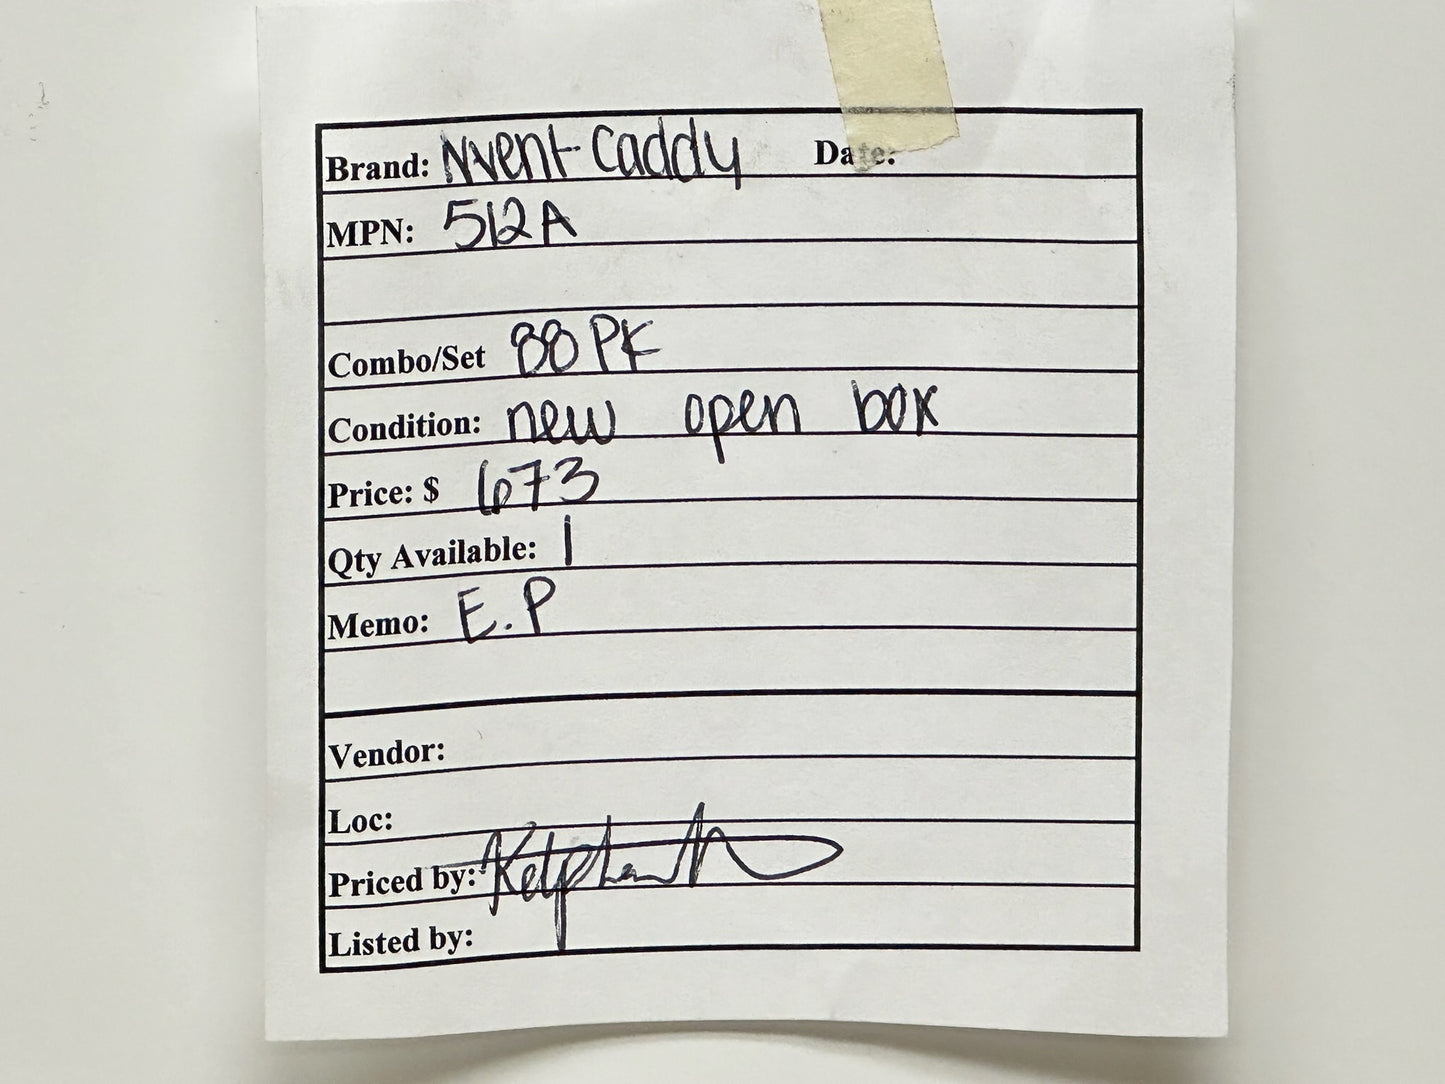 Brand: Nvent Caddy Date:
MPN: 512A
Combo/Set 88 PK
Condition: new open box
Price: $ 673
Qty Available: 1
Memo: E.P
Vendor:
Loc:
Priced by:
Listed by: